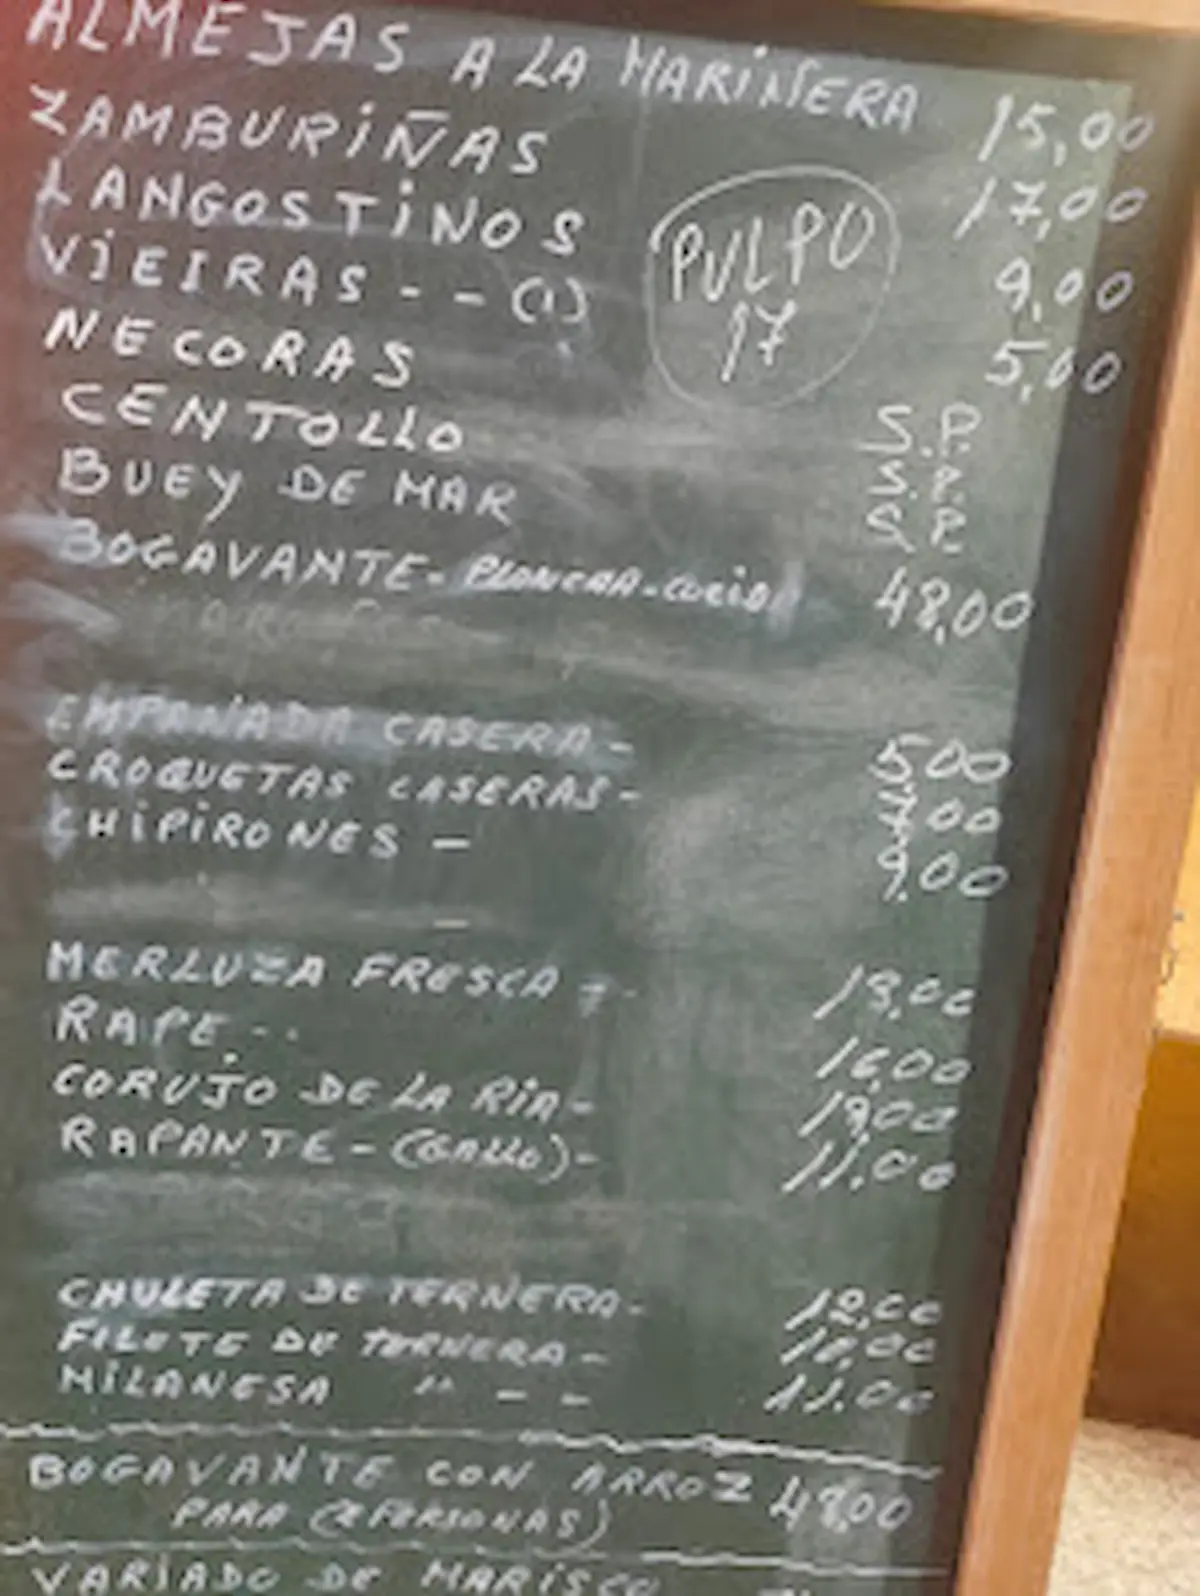 ALMEJAS A LA MARIÑERA 15,00
ZAMBURIÑAS 17,00
LANGOSTINOS 9,00
VIEIRAS - - (1) 5,00
PULPO
17
NECORAS S.P.
CENTOLLO S.P.
BUEY DE MAR S.P.
BOGAVANTE - PLANCHA - COCIDO 48,00
EMPANADA CASERA - 5 00
CROQUETAS CASERAS - 7,00
CHIPIRONES - 9,00
MERLUZA FRESCA - -
RAPE - - 16,00
CORUJO DE LA RIA -
RAPANTE - (GALLO) - 11,00
CHULETA DE TERNERA -
FILETE DE TERNERA -
MILANESA " - - 11.00
BOGAVANTE CON ARROZ 48,00
PARA (2 PERSONAS)
VARIADO DE MARISCO